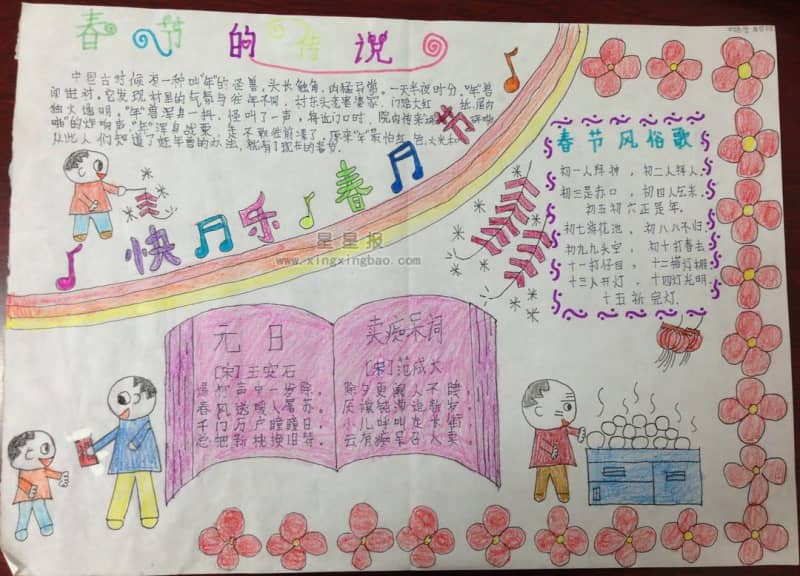 春节的传说
中国古时候有一种叫"年"的怪兽,头长触角,凶猛异常。一天半夜时分,"年"兽
闯进村。它发现村里的气氛与往年不同,村东头老婆婆家,门贴大红 纸,屋内
烛火通明。"年"兽浑身一抖,怪叫了一声,将近门口时,院内传来 砰啪
啪"的炸响声,"年"浑身战栗,
从此人们知道了赶年兽的办法,就有了现在的春节。
快乐春节
星星报
www.xingxingbao.com
春节风俗歌
初一人拜神,初二人拜人,
初三是赤口,初四人伍米,
初五初六正是年。
初七浴花池,初八八不归,
初九九头空,初十打春去,
十一打仔目,十二搭灯棚,
十三人开灯,十四灯光明,
十五祈完灯
元日
[宋]王安石
爆竹声中一岁除,
春风送暖入屠苏。
千门万户曈曈日,
总把新桃换旧符。
卖痴呆词
[宋]范成大
除夕更阑人不睡
厌禳钝滞迎新岁,
小儿呼叫走长街
云有痴呆召人卖。